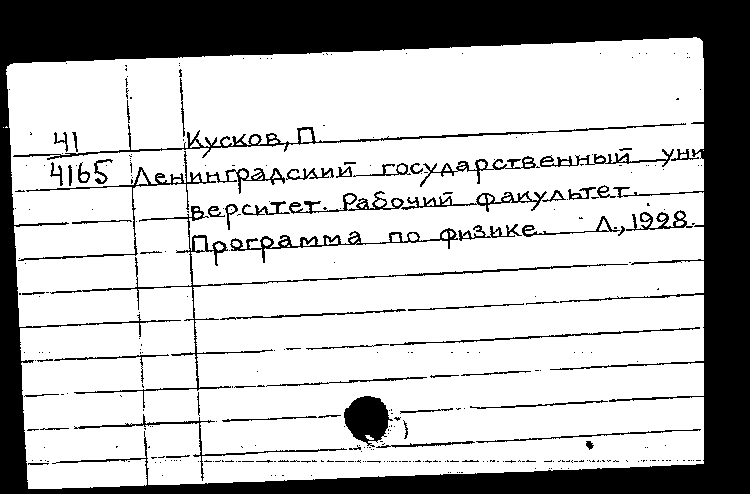 41 Кусков, П.
4165 Ленинградский государственный уни
верситет. Рабочий факультет.
Программа по физике. Л., 1928.